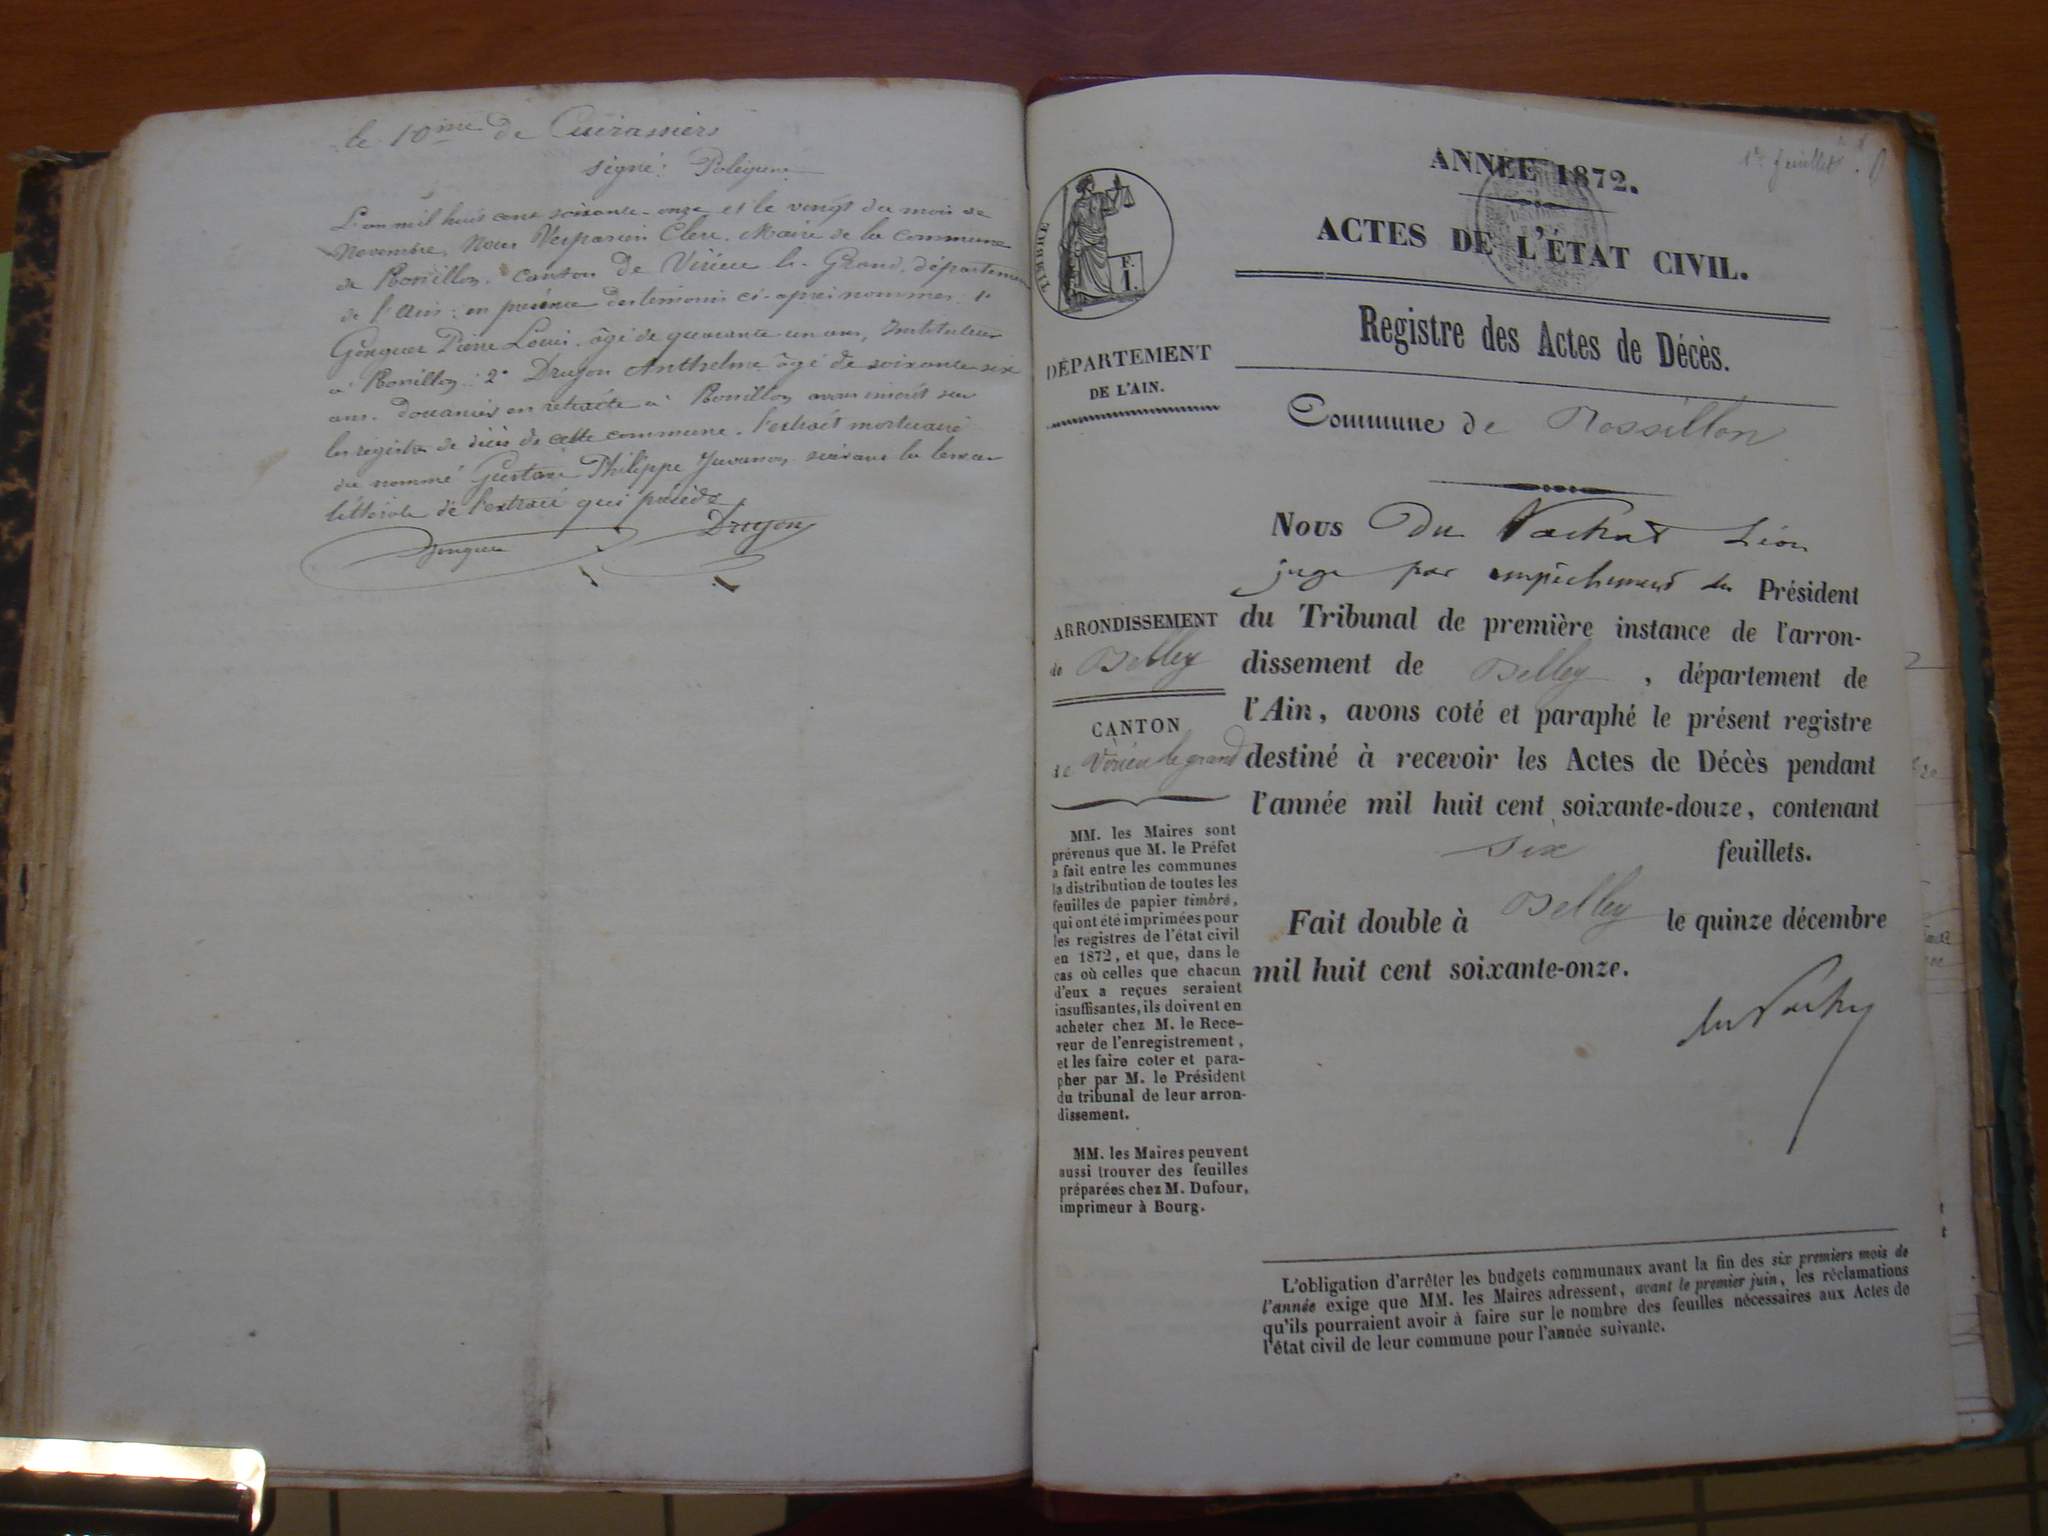 le 10ème de Cuirassiers
signé:
L'an mil huit cent soixante-onze et le vingt du mois de
Novembre, Nous Vespasien Clerc, Maire de la commune
de Rossillon, canton de Virieu le Grand, département
de l'Ain; en présence des témoins ci-après nommés, 1°
Pierre Louis, âgé de quarante un ans, Instituteur
à Rossillon; 2° Drujon Anthelme âgé de soixante six
ans, Douanier en retraite à Rossillon avons inscrit sur
les registres de décès de cette commune, l'extrait mortuaire
du nommé Gustave Philippe Juvanon, suivant la teneur
littérale de l'extrait qui précède.
Drujon
1er feuillet
ANNÉE 1872.
ACTES DE L'ÉTAT CIVIL.
Registre des Actes de Décès.
Commune de Rossillon
TIMBRE
F.
1.
DÉPARTEMENT
DE L'AIN.
ARRONDISSEMENT
de Belley
CANTON
de Virieu le grand
MM. les Maires sont
prévenus que M. le Préfet
a fait entre les communes
la distribution de toutes les
feuilles de papier timbré,
qui ont été imprimées pour
les registres de l'état civil
en 1872, et que, dans le
cas où celles que chacun
d'eux a reçues seraient
insuffisantes, ils doivent en
acheter chez M. le Rece-
veur de l'enregistrement,
et les faire coter et para-
pher par M. le Président
du tribunal de leur arron-
dissement.
MM. les Maires peuvent
aussi trouver des feuilles
préparées chez M. Dufour,
imprimeur à Bourg.
Nous Du Vachat Léon
juge par empêchement du Président
du Tribunal de première instance de l'arron-
dissement de Belley, département de
l'Ain, avons coté et paraphé le présent registre
destiné à recevoir les Actes de Décès pendant
l'année mil huit cent soixante-douze, contenant
six feuillets.
Fait double à Belley le quinze décembre
mil huit cent soixante-onze.
du Vachat
L'obligation d'arrêter les budgets communaux avant la fin des six premiers mois de
l'année exige que MM. les Maires adressent, avant le premier juin, les réclamations
qu'ils pourraient avoir à faire sur le nombre des feuilles nécessaires aux Actes de
l'état civil de leur commune pour l'année suivante.